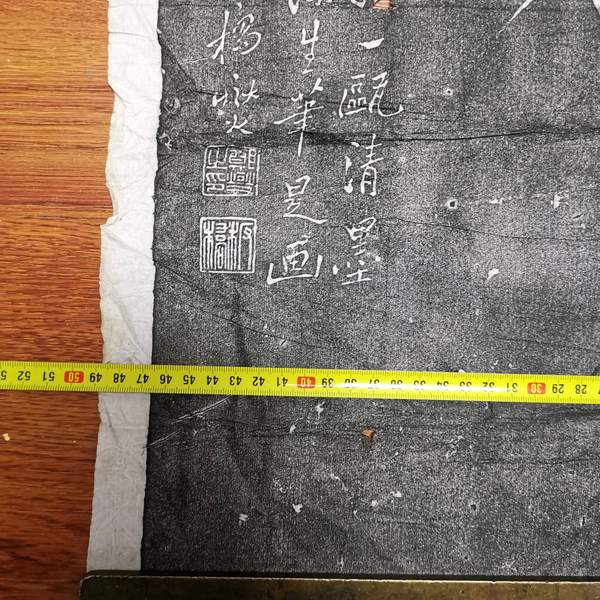 一甌清墨
生華是画
橋燮
鄭燮之印
板橋
52 51 50 49 48 47 46 45 44 43 42 41 40 39 38 37 36 35 34 33 32 31 30 29 28